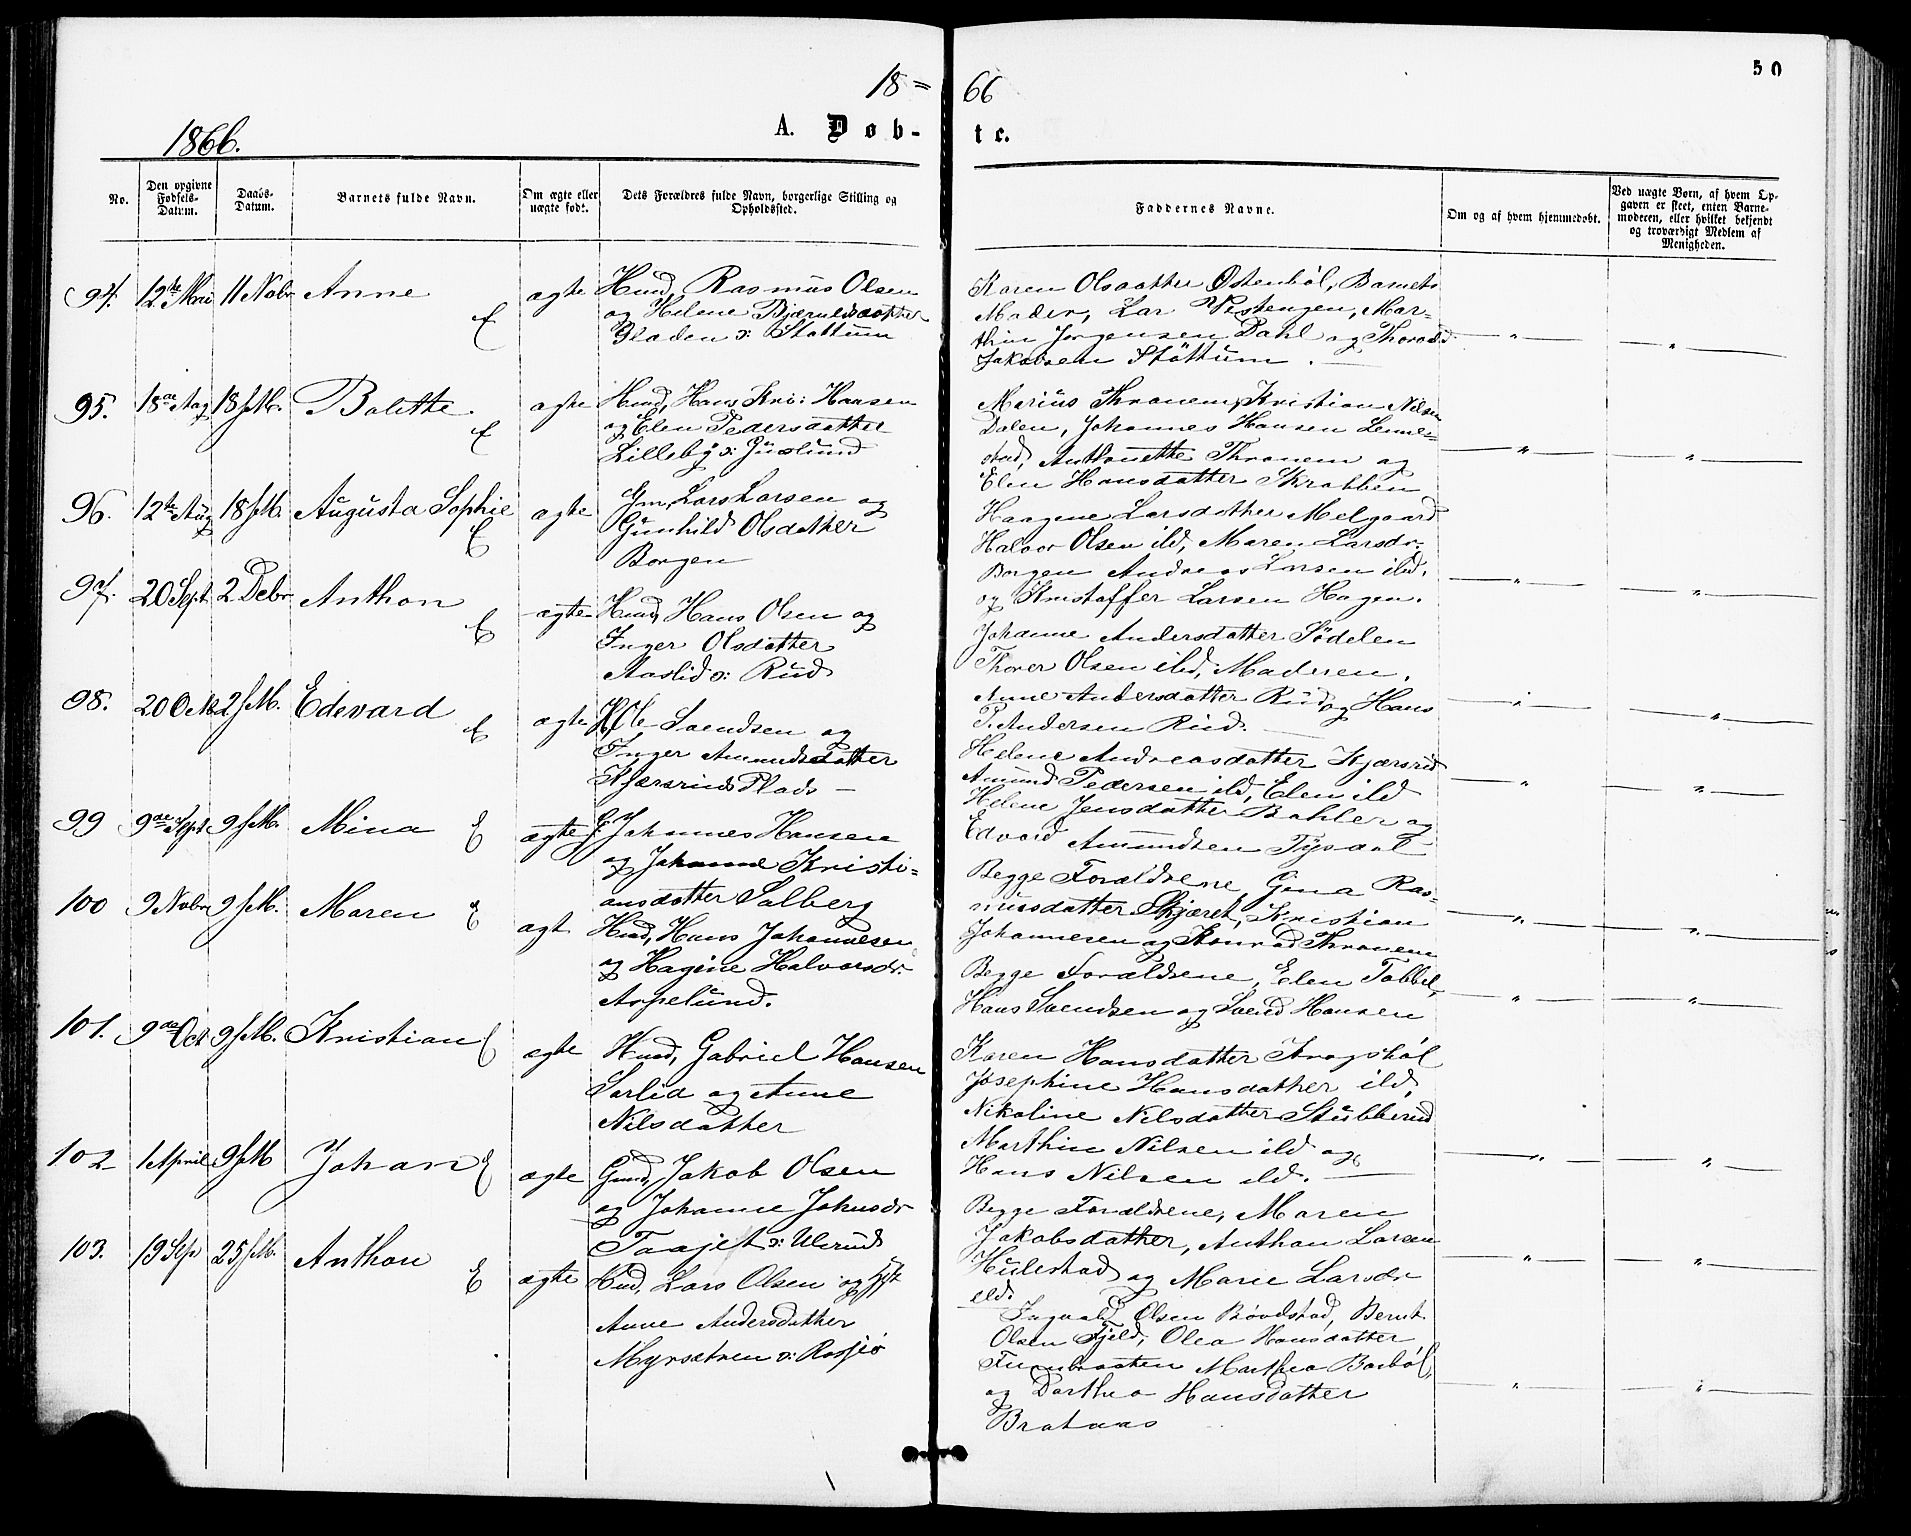 50
18 = 66
1866.
A. Døb-te.
No.
Den opgivne Fødsels-Datum.
Daabs-Datum.
Barnets fulde Navn.
Om ægte eller uægte født.
Dets Forældres fulde Navn, borgerlige Stilling og Opholdssted.
Faddernes Navne.
Om og af hvem hjemmedøbt.
Ved uægte Børn, af hvem Opgaven er skeet, enten Barnemoderen, eller hvilket bekjendt og troværdigt Medlem af Menigheden.
94. 12te 11 Nobr Anne ægte Husd, Rasmus Olsen
og Helene Bjærnedsdatter
Pladen o: Støttum
Karen Olsdatter Østenböl, Barnets
Moder, Lar Vestengen, Mar=
thin Jørgensen Dahl og Thorvald
Jakobsen Stöttum.
95. 18de Aug 18 s.M. Bolette ægte Husd, Hans Kri: Hansen
og Elen Pedersdatter
Lillebÿ o: Juelund
Marius Thronem, Kristian Nilsen
Dalen, Johannes Hansen Lenne=
stad, Anthonette Thronem og
Elen Hansdatter Skrabben
96. 12te Aug 18 s.M. Augusta Sophie ægte Gm, Lars Larsen og
Gunhild Olsdatter
Borgen
Haagene Larsdatter Melgaard
Halvor Olsen ibd, Maren Larsdr
Borgen Andreas Larsen ibd,
og Kristoffer Larsen Hagen.
97. 20 Sept 2 Debr Anthon ægte Husd, Hans Olsen og
Inger Olsdatter
Aaslid o: Rud
Johanne Andersdatter Södelen
Thorer Olsen ibd, Moderen,
Anne Andersdatter Rud og Hans
P. Andersen Rud.
98. 20 Okt 2 s.M. Edevard ægte Ole Svendsen og
Inger Amundsdatter
Kjærsrud Plads
Helene Andreasdatter Kjærsrud
Amund Pedersen ibd, Elen ibd
Helene Jensdatter Bahler og
Edvard Amundsen
99 9de Sept 9 s.M. Mina ægte G. Johannes Hansen
og Johanne Kristi=
ansdatter Solberg
Begge Forældrene, Gina Ras=
musdatter Skjæret, Kristian
Johannesen og Konrad Thronem
100 9 Nobr 9 s.M. Maren ægt Husd, Hans Johannesen
og Hagine Halvorsdr
Aspelund.
Begge Forældrene, Elen Tobbel,
Hans Svendsen og Svend Hansen
101. 9de Oct 9 s.M. Kristian ægte Husd, Gabriel Hansen
Sorlid og Anne
Nilsdatter
Karen Hansdatter Kragsböl
Josephine Hansdatter ibd,
Nikoline Nilsdatter Stubberud
Marthin Nilsen ibd og
Hans Nilsen ibd.
102 1 April 9 s.M Johan ægte Gmd, Jakob Olsen
og Johanne Johnsdr
Taajet o: Ulerud
Begge Forældrene, Maren
Jakobsdatter, Anthon Larsen
Hulestad og Marie Larsdr
ibd.
103. 19 Sep 25 s.M. Anthon ægte Husd, Lars Olsen og
Anne Andersdatter
Myrsætren o: Rosjø
Ingvald Olsen Bövelstad, Bernt
Olsen Fjeld, Olea Hansdatter
Furubraaten Marthea Borböl,
og Dorthea Hansdatter
Brataas